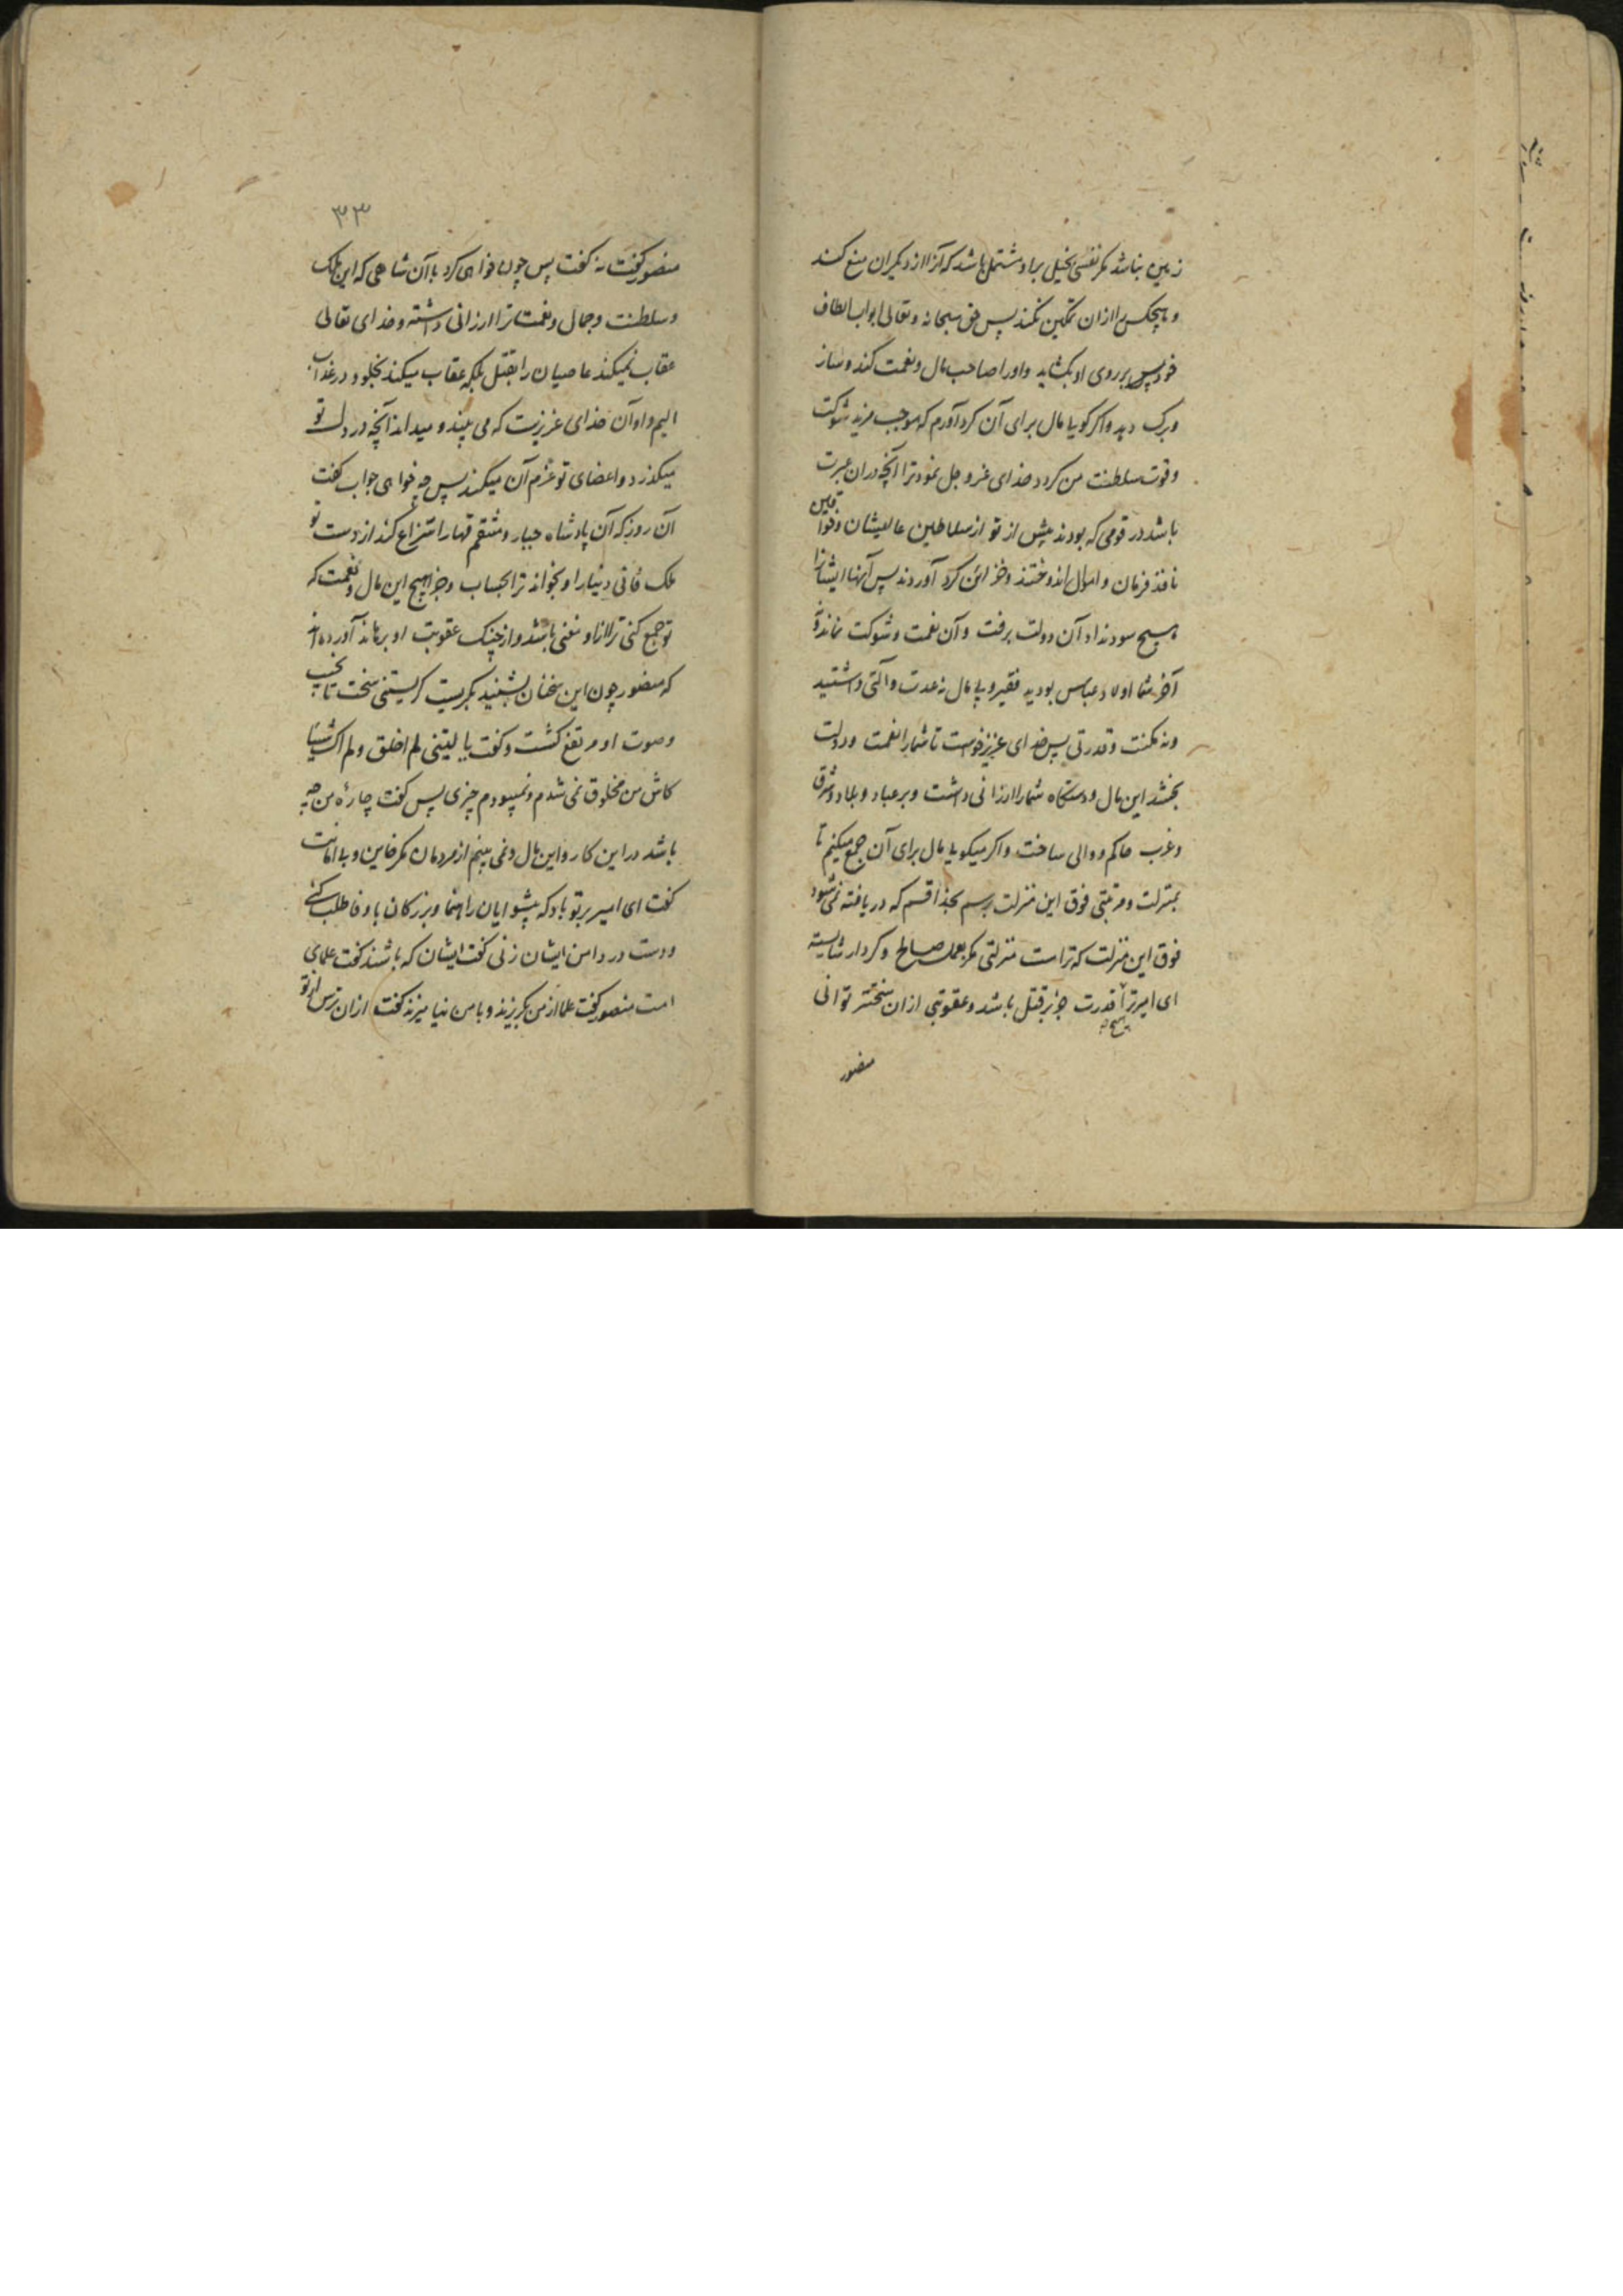 زمین نباشد مکر نفسی بخیل براو مشتمل باشد که آنرا از دیکران منع کند
و هیچکس را ازان تمکین نکند پس حق سبحانه و تعالی ابواب الطاف
خود پس بر روی او بکشاید و اورا صاحب مال و نعمت کند و ساز
و برک دهد و اکر کویا مال برای آن کرد آورم که موجب مزید شوکت
و قوت سلطنت من کردد خدای عز و جل نمود ترا آنچه دران عبرت
باشد در قومی که بودند پیش از تو از سلاطین عالیشان و خواقین
نافذ فرمان و اموال اندوختند و خزائن کرد آوردند پس آنها ایشانرا
هیچ سود نداد آن دولت برفت و آن نعمت و شوکت نماند و
آخر شما اولاد عباس بودید فقیر و بی مال نه عدت و آلتی داشتید
و نه مکنت و قدرتی پس خدای عزیز خواست تا شمارا نعمت و دولت
بخشد این مال و دستکاه شمارا ارزانی داشت و بر عباد و بلاد و شرق
و غرب حاکم و والی ساخت و اکر میکویا مال برای آن جمع میکنم تا
بمنزلت و مرتبتی فوق این منزلت برسم بخدا قسم که دریافته نمی شود
فوق این منزلت که تراست منزلتی مکر بعمل صالح و کردار شایسته
ای امیر ترا هیچ قدرت جز بر قتل باشد و عقوبتی ازان سختتر توانی
منصور
۳۳
منصور کفت نه کفت پس چون خواهی کرد با آن شاهی که این ملک
و سلطنت و جمال و نعمت ترا ارزانی داشته و خدای تعالی
عقاب نمیکند عاصیان را بقتل بلکه عقاب میکند بخلود در عذاب
الیم و او آن خدای عزیزیست که می بیند و میداند آنچه در دل تو
میکذرد و اعضای تو عزم آن میکند پس چه خواهی جواب کفت
آن روز که آن پادشاه جبار و منتقم قهار انتزاع کند از دست تو
ملک فانی دنیا را و بخواند ترا بحساب و جزا هیچ این مال و نعمت که
تو جمع کنی ترا ازاو مغنی باشد و از چنک عقوبت او برهاند آورده اند
که منصور چون این سخنان بشنید بکریست کریستنی سخت تا نحیب
و صوت او مرتفع کشت و کفت یا لیتنی لم اخلق و لم اک شیئا
کاش من مخلوق نمی شدم و نمیبودم چیزی پس کفت چارۀ من چه
باشد در این کار و این مال و نمی بینم از مردمان مکر خاین و بی امانت
کفت ای امیر بر تو باد که پیشوایان راهنما و بزرکان با وفا طلب کنی
و دست در دامن ایشان زنی کفت ایشان که باشند کفت علمای
امت منصور کفت علما از من بکریزند و با من نیامیزند کفت ازان ترس از تو